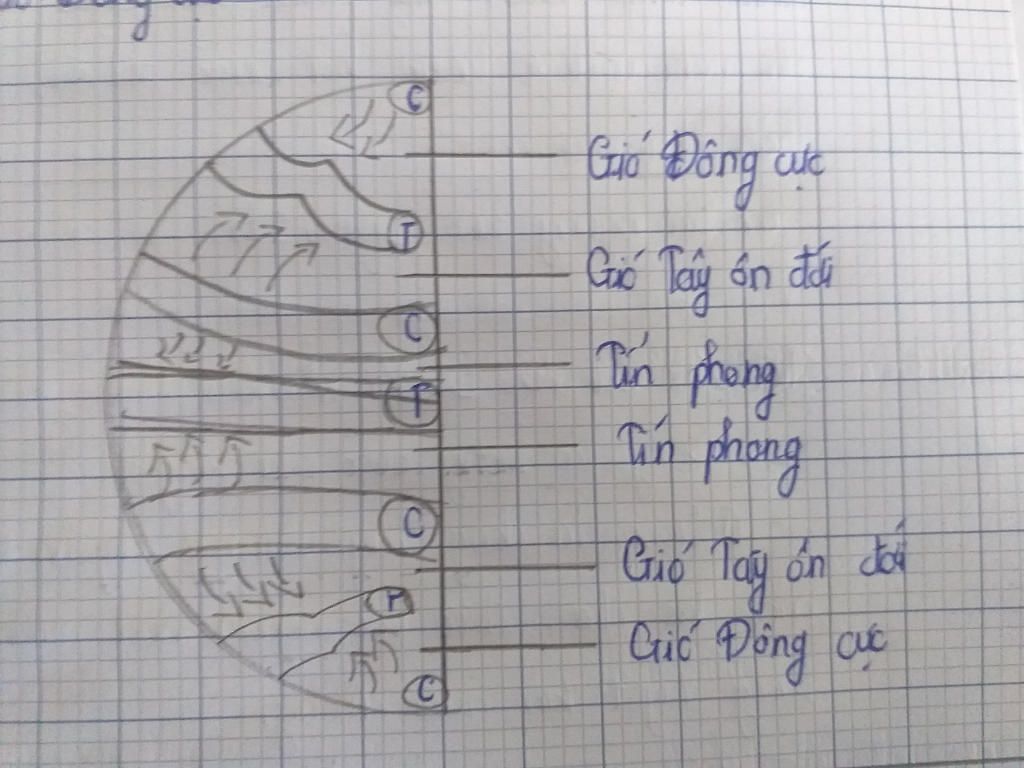 C
Gió Đông cực
T
Gió Tây ôn đới
C
Tín phong
T
Tín phong
C
Gió Tây ôn đới
T
Gió Đông cực
C